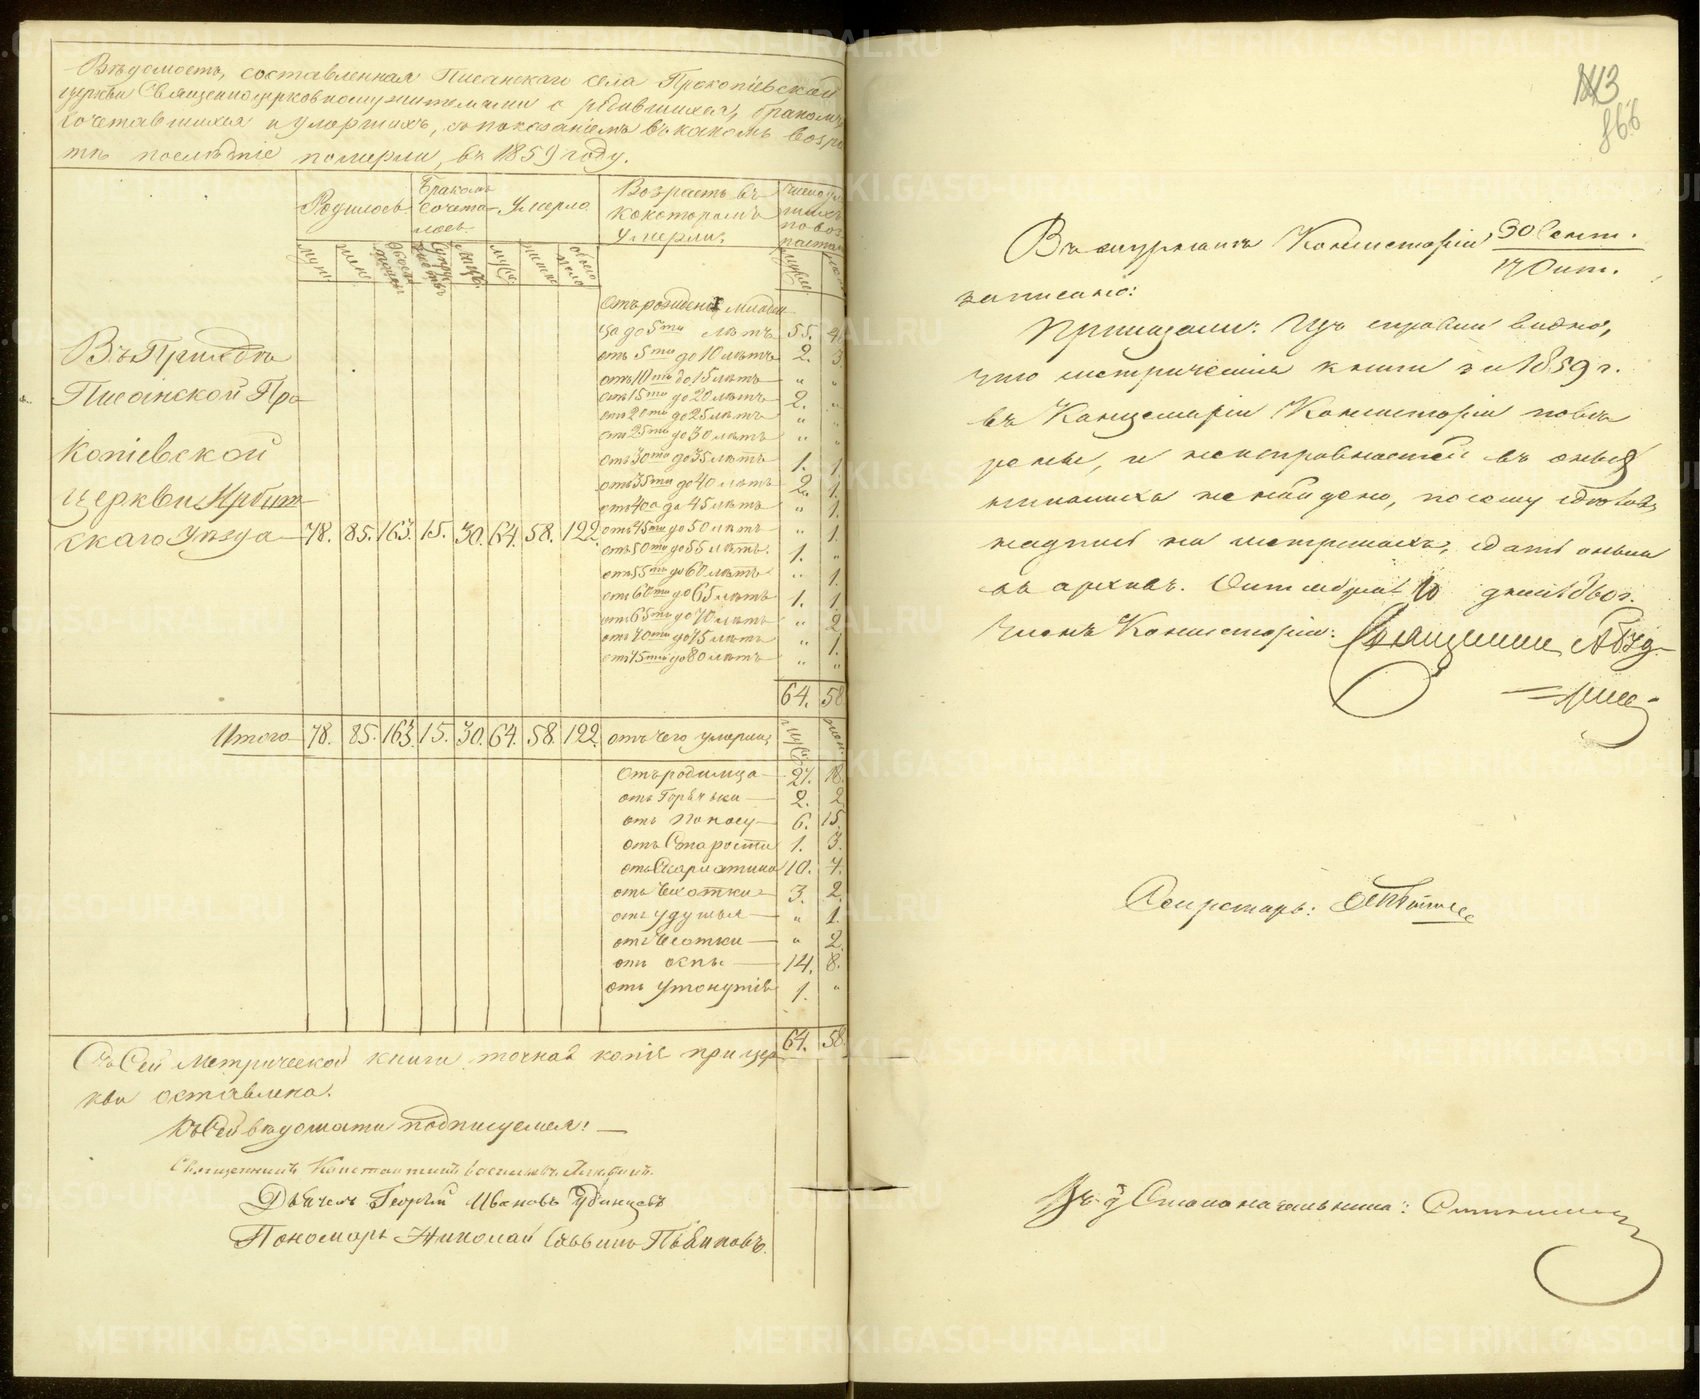 Ведомость, составленная Писанскаго села Прокопіевской
церкви Священноцерковнослужителями о родившихся, бракомъ
сочетавшихся и умершихъ, съ показаніемъ въ какомъ возра
тѣ послѣдніе померли, въ 1859 году.
Родилось
Бракомъ
сочета-
лось.
Умерло
Возрастъ въ
которомъ
умерли.
число ум
шихъ
по воз
растам
муж.
жен.
обоего
пола
муж.
жен.
обоего
пола
Отъ рожденія младен
ца до 5ти лѣтъ 55. 4
отъ 5ти до 10 лѣтъ 2. 3
отъ 10ти до 15 лѣтъ " "
отъ 15ти до 20 лѣтъ 2. "
отъ 20ти до 25 лѣтъ " "
отъ 25ти до 30 лѣтъ " "
отъ 30ти до 35 лѣтъ 1. 1
отъ 35ти до 40 лѣтъ 2. 1.
отъ 40а до 45 лѣтъ " 1.
отъ 45ти до 50 лѣтъ " 1
отъ 50ти до 55 лѣтъ. 1. "
отъ 55ти до 60 лѣтъ " 1.
отъ 60ти до 65 лѣтъ 1. 1
отъ 65ти до 70 лѣтъ " 2
отъ 70ти до 75 лѣтъ " 1.
отъ 75ти до 80 лѣтъ " "
64. 58
Въ Приходѣ
Писанской Про
копіевской
церкви Ирбит
скаго Уѣзда 78. 85. 163. 15. 30. 64. 58. 122.
Итого 78. 85. 163. 15. 30. 64. 58. 122. отъ чего умерли, муж. жен.
Отъ родимца 27. 18.
отъ Горячки 2. 2
отъ Поносу 6. 15.
отъ Старости 1. 3.
отъ Скарлатины 10. 7.
отъ Чахотки 3. 2.
отъ удушья " 1.
отъ Чесотки " 2.
отъ оспы 14. 8.
отъ утонутія 1. "
64. 58.
Съ Сей Метрической книги точная копія при цер
кви оставлена.
Къ Сей вѣдомати подписуемся:
Священникъ Константинъ Васильевъ
Дьячекъ Георгій Ивановъ Удинцевъ
Пономарь Николай Саввинъ
113
866
Въ журналѣ Консисторіи, 30 Сент.
17 Окт.
записано:
Приказали: Изъ справки видно,
что метрическія книги за 1859 г.
въ Канцеляріи Консисторіи повѣ
рены, и неисправностей въ оныхъ
никакихъ не найдено, посему сдѣлавъ
надпись на метрикахъ, сдать оныя
въ архивъ. Октября 10 дня 1860 г.
Членъ Консисторіи: Священникъ
Секретарь:
Столоначальника:
METRIKI.GASO-URAL.RU